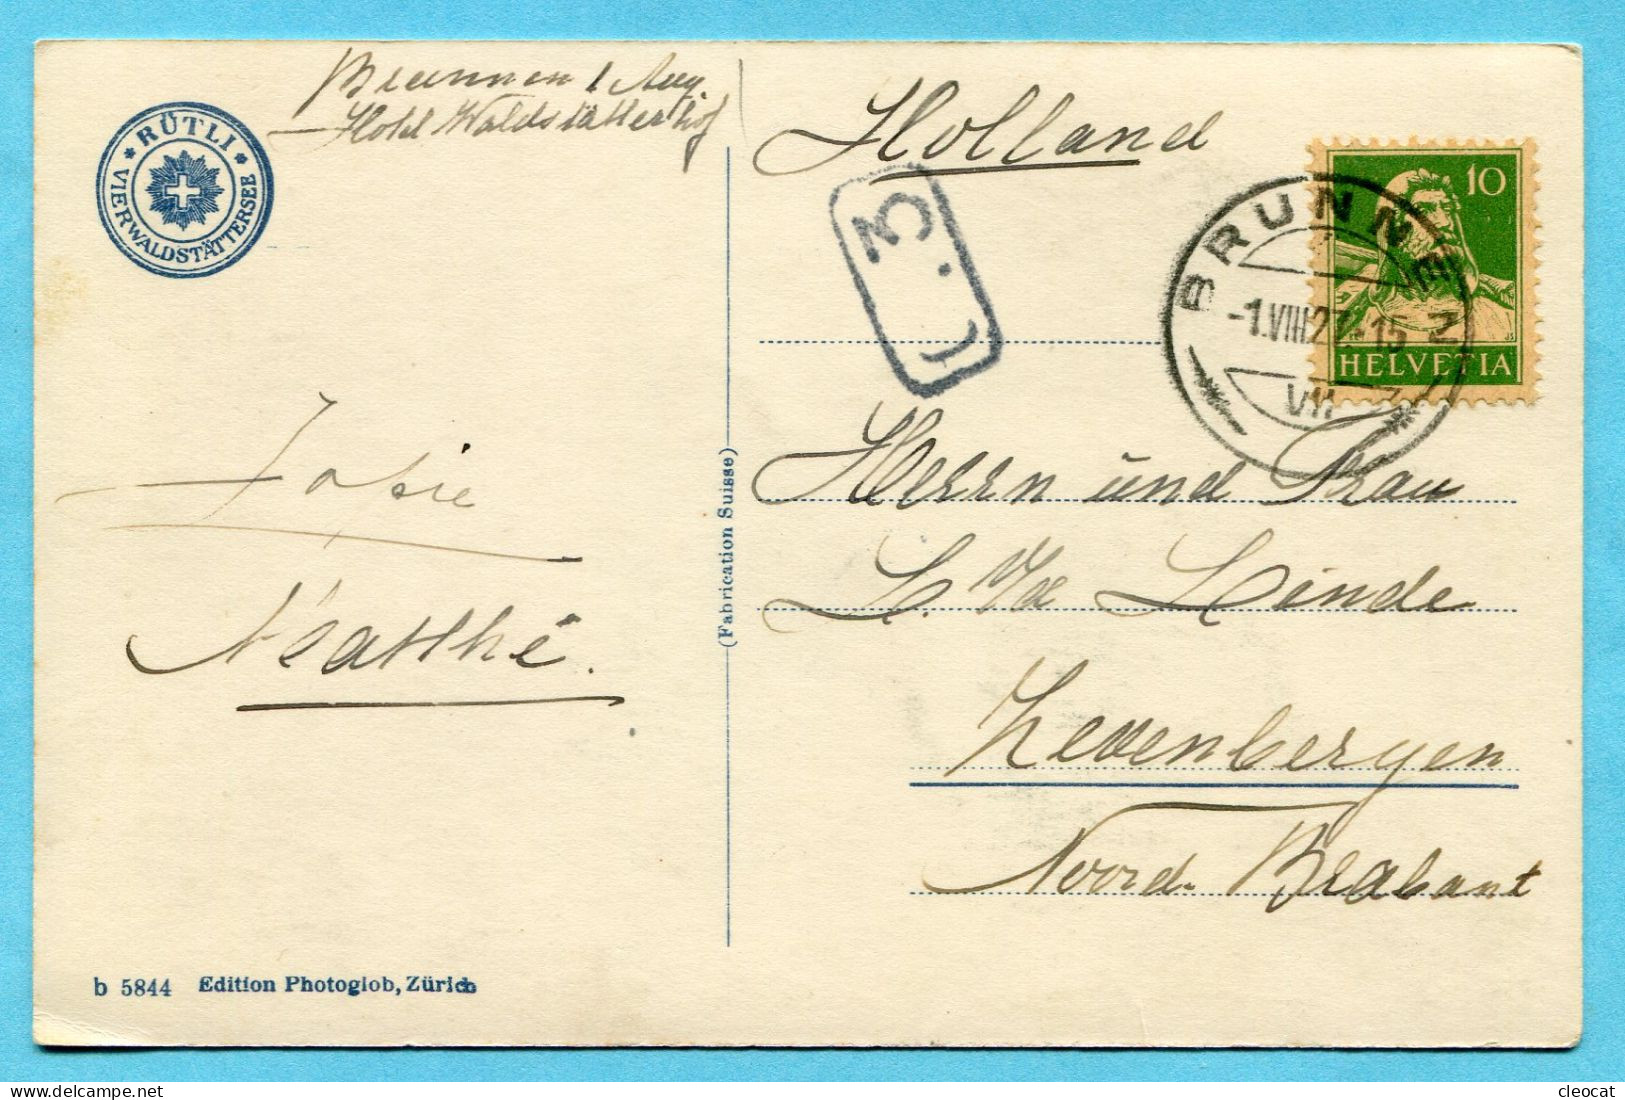 Brunnen 1 Aug.
Hotel Waldstätterhof
Holland
* RÜTLI *
VIERWALDSTÄTTERSEE
10
HELVETIA
BRUNNEN
-1.VIII.27.-15
VII
3.
Herrn und Frau
L. v/d Linde
Zevenbergen
Noord-Brabant
(Fabrication Suisse)
b 5844 Edition Photoglob, Zürich
cleocat